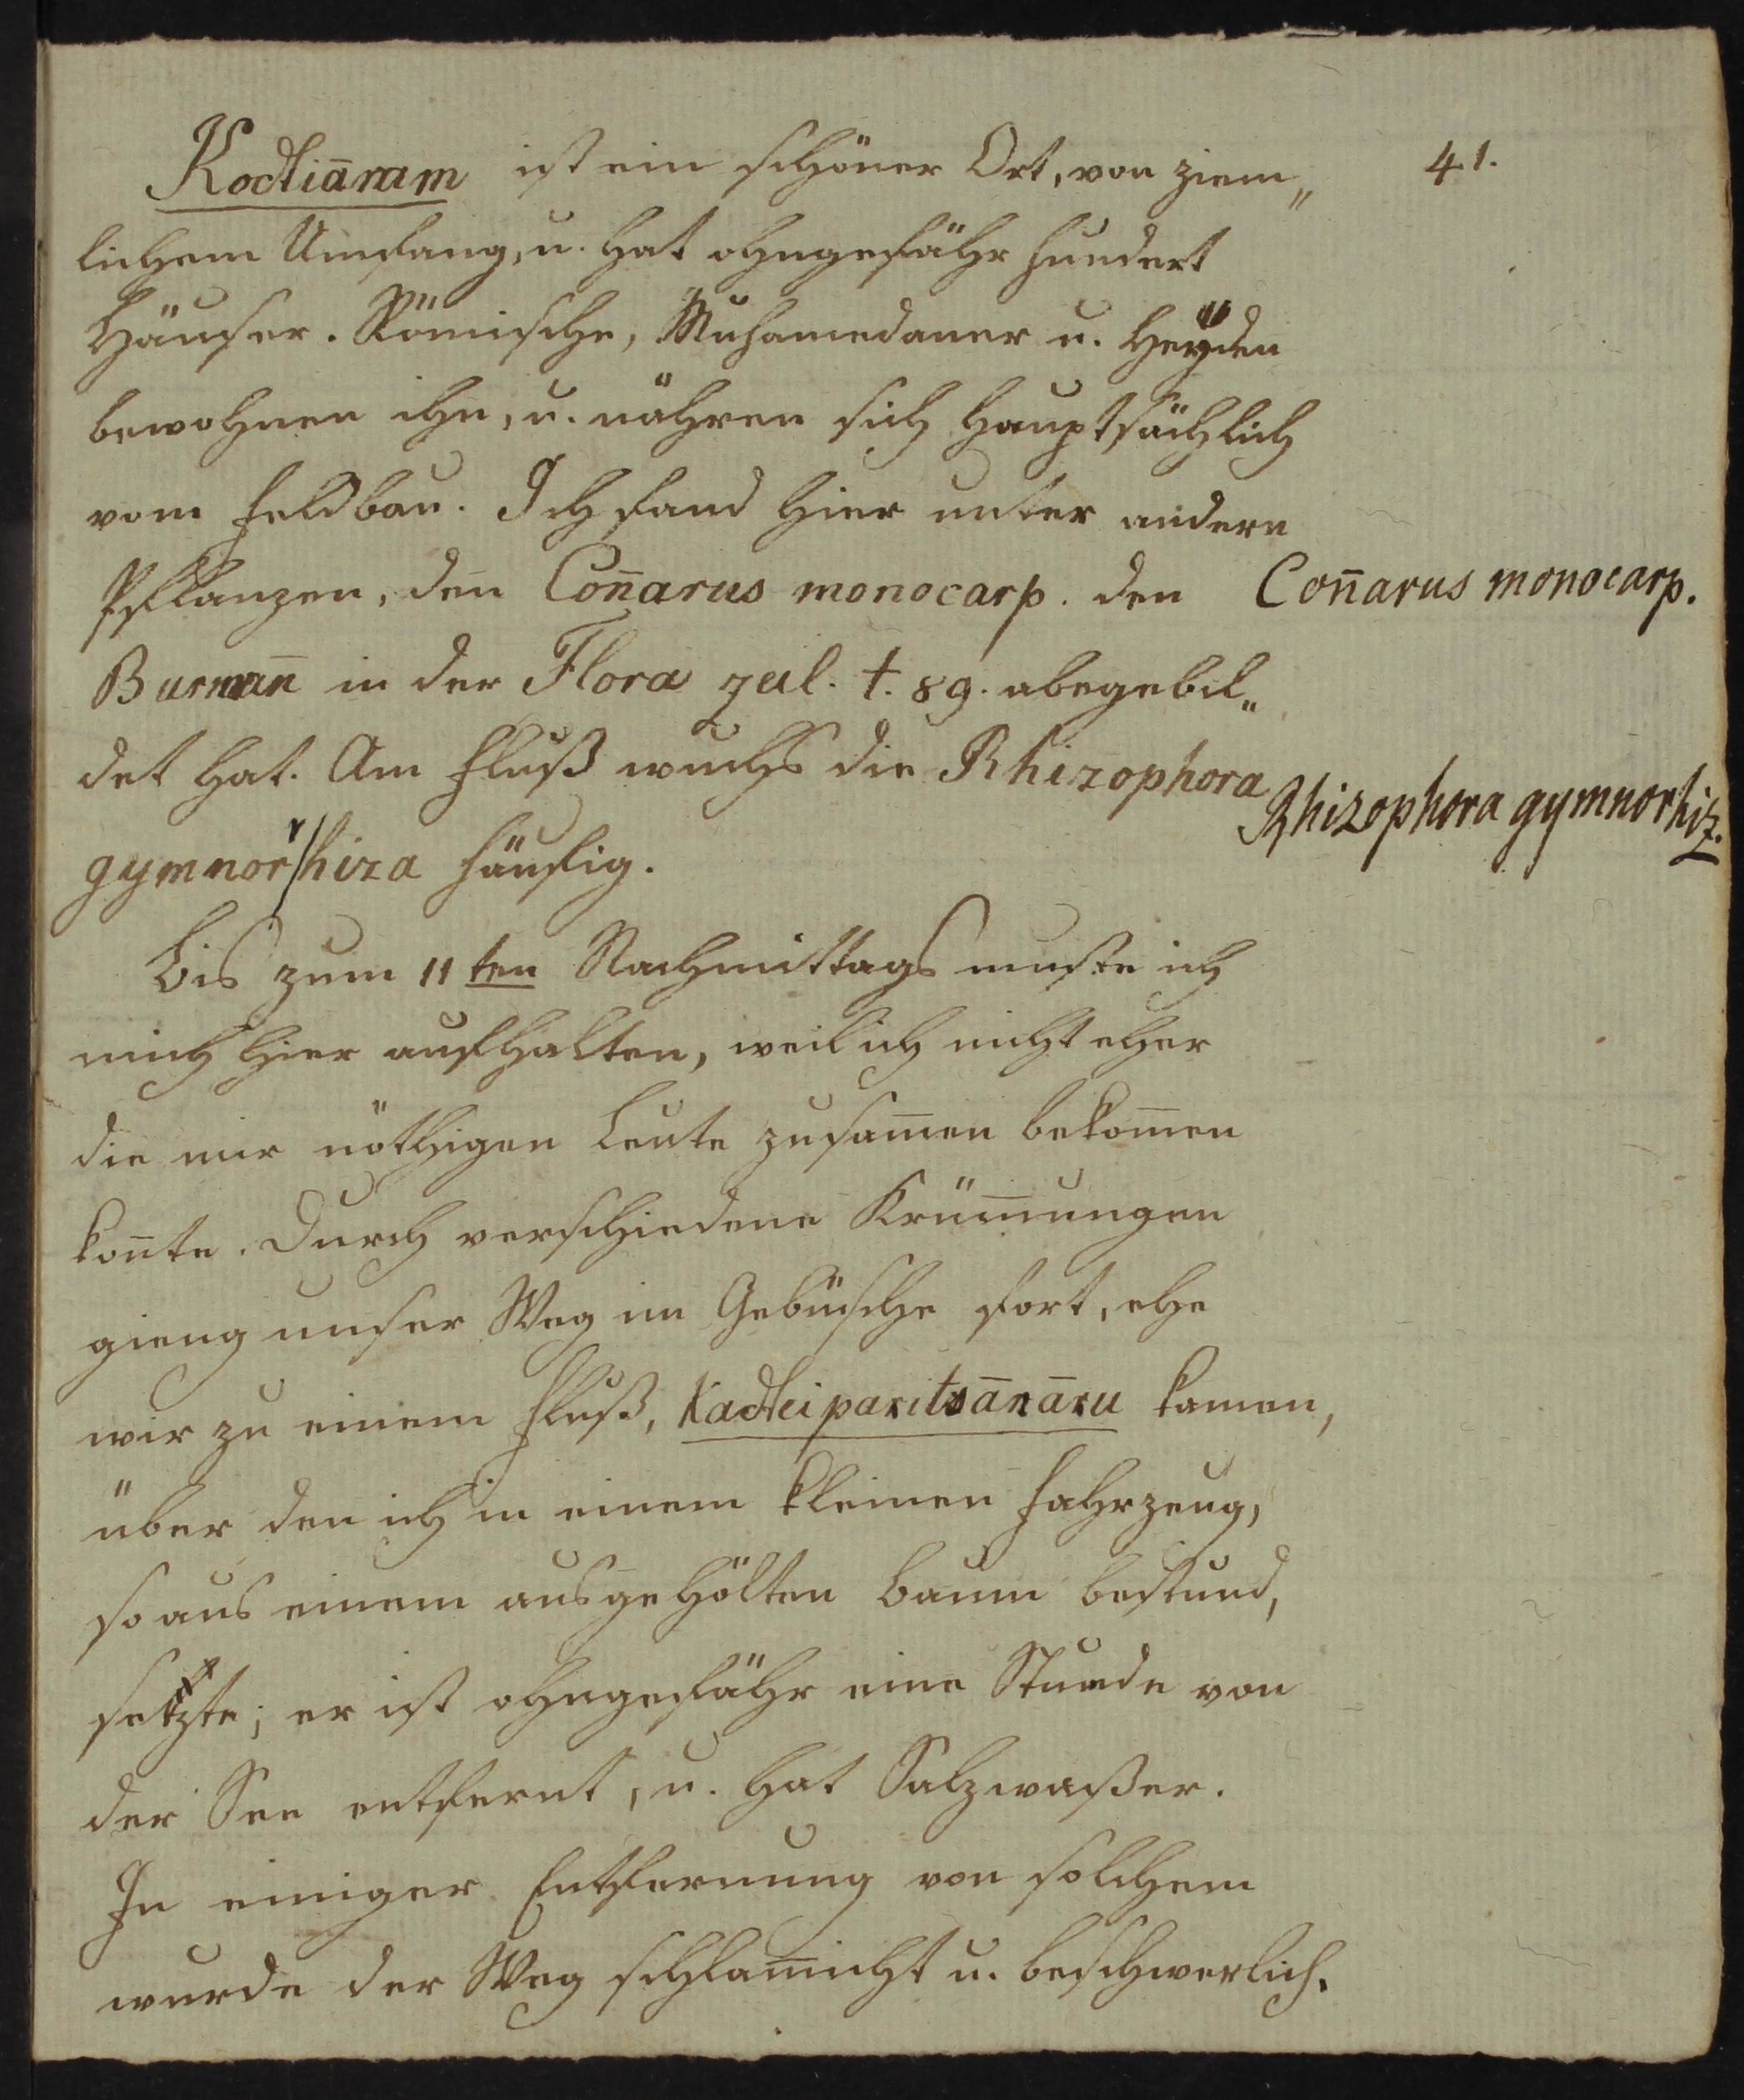 41.
Kodtiāram ist ein schöner Ort, von ziem„
lichem Umfang, u. hat ohngefähr hundert
Häuser. Römische, Muhamedaner u. Heyden
bewohnen ihn, u. nähren sich hauptsächlich
vom Feldbau. Ich fand hier unter andern
Pflanzen, den Coñarus monocarp. den
Coñarus monocarp.
Burmañ in der Flora zeil. t. 89. abgebil„
det hat. Am Fluß wuchs die Rhizophora
Rhizophora gymnorhiz.
gymnorrhiza häufig.
Bis zum 11ten Nachmittags muste ich
mich hier aufhalten, weil ich nicht eher
die mir nöthigen Leute zusam̅en bekom̅en
kon̅te. Durch verschiedene Krüm̅ungen
gieng unser Weg im Gebüsche fort, ehe
wir zu einem Fluß, Kadteiparitsānāru kamen,
über den ich in einem kleinen Fahrzeug,
so aus einem ausgehölten Baum bestund,
setzte; er ist ohngefähr eine Stunde von
der See entfernt, u. hat Salzwaßer.
In einiger Entfernung von solchem
wurde der Weg schlam̅icht u. beschwerlich.